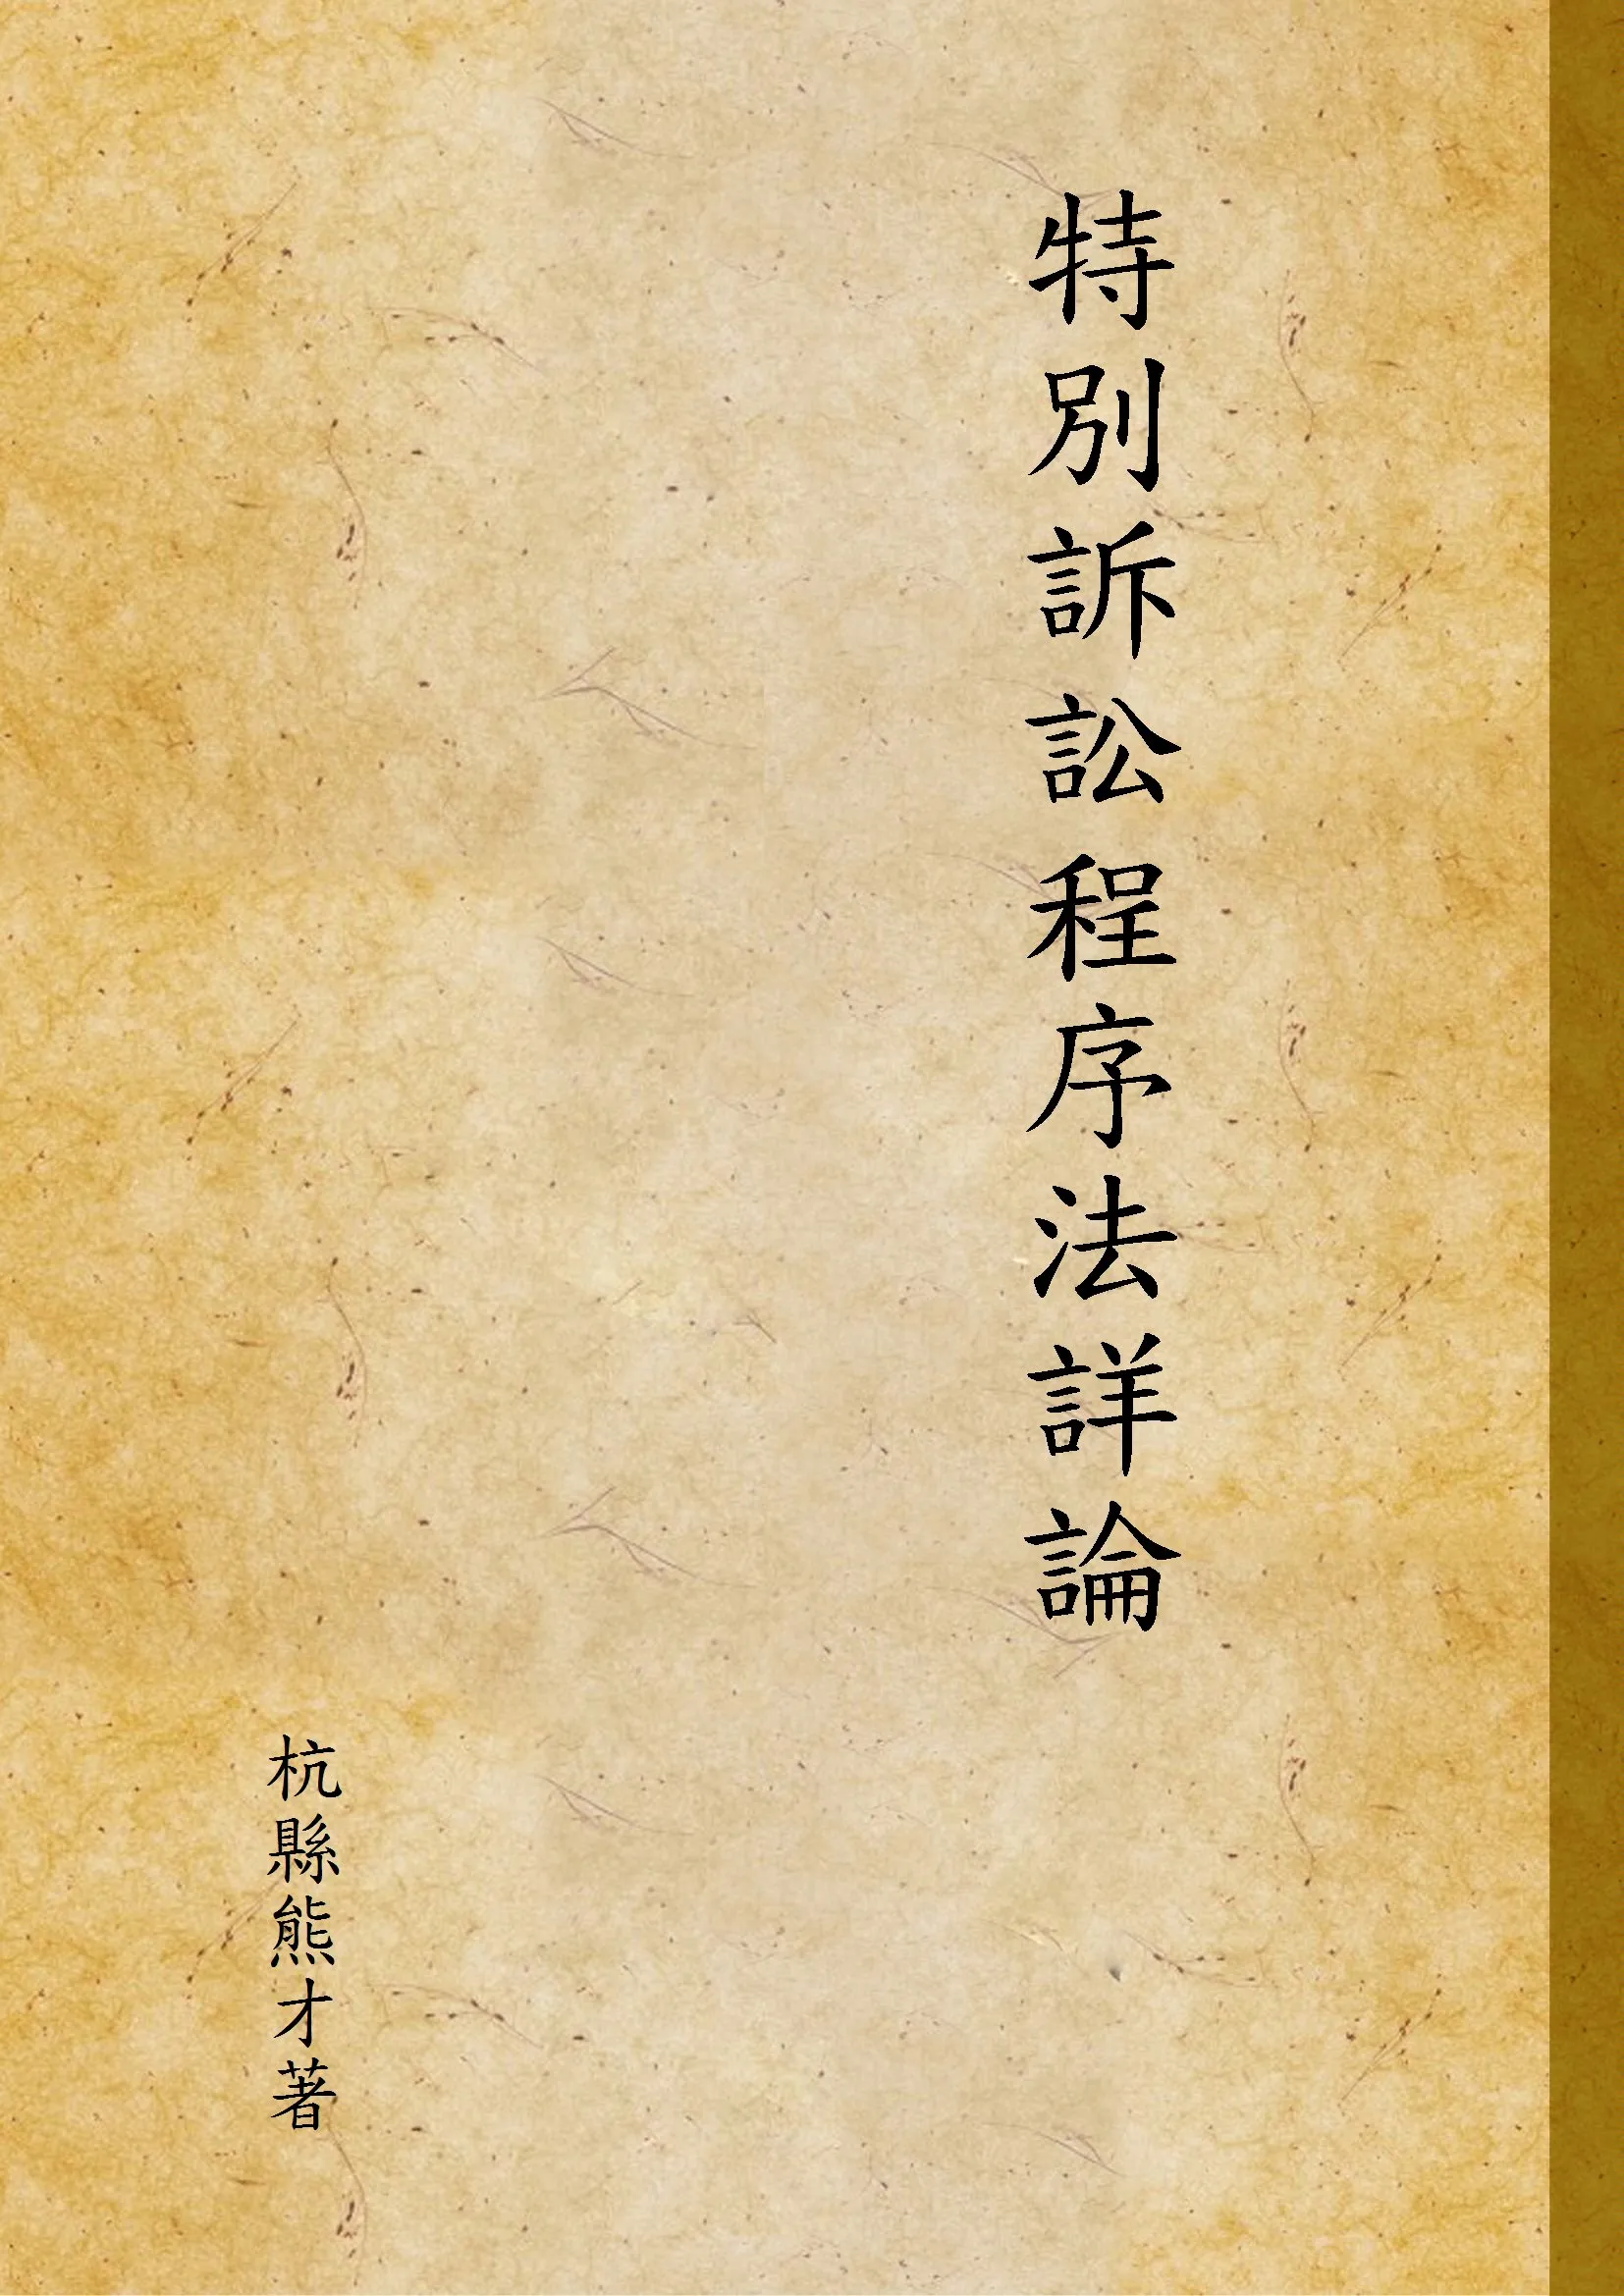 特別訴訟程序法詳論
杭縣熊才著